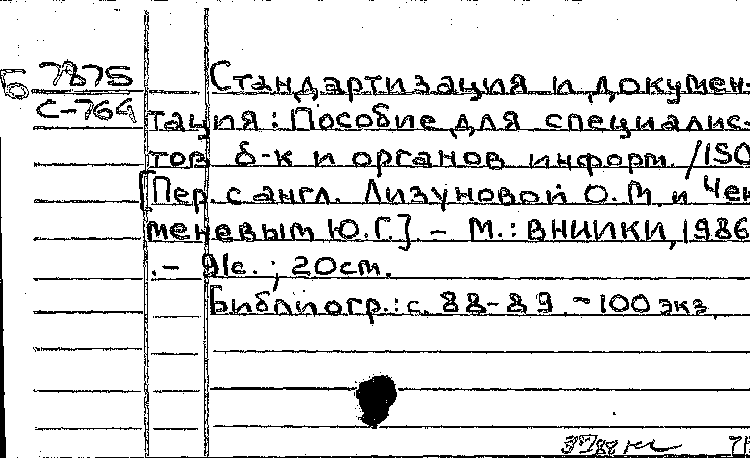 Б 7875
С-764
Стандартизация и докумен-
тация: Пособие для специалис-
тов б-к и органов информ. /ISO
[Пер. с англ. Лизуновой О.М. и Чек
меневым Ю.Г.] - М.: ВНИИКИ, 1986
. - 91с. ; 20cm.
Библиогр.: с. 88-89. - 100 экз.